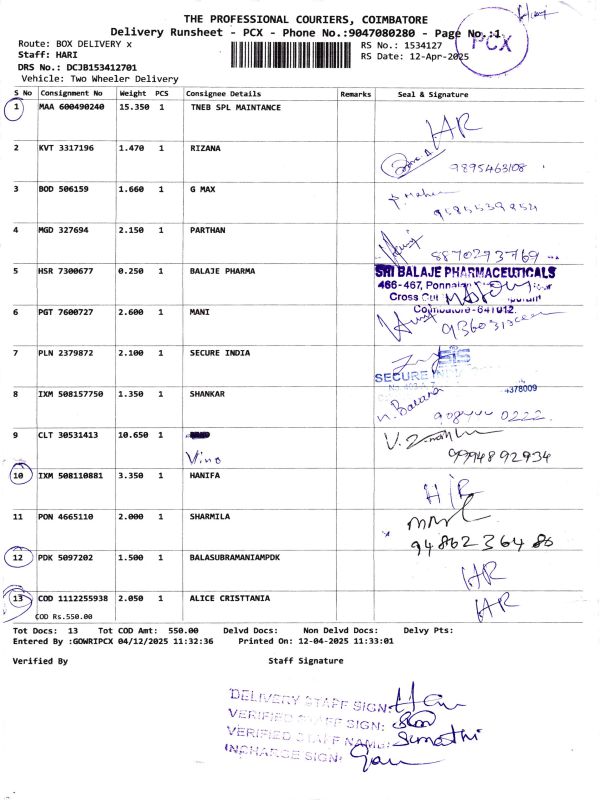 THE PROFESSIONAL COURIERS, COIMBATORE
Delivery Runsheet - PCX - Phone No.:9047080280 - Page No.:1
PCX
Route: BOX DELIVERY x RS No.: 1534127
Staff: HARI RS Date: 12-Apr-2025
DRS No.: DCJB153412701
Vehicle: Two Wheeler Delivery
S No Consignment No Weight PCS Consignee Details Remarks Seal & Signature
1 MAA 600490240 15.350 1 TNEB SPL MAINTANCE
2 KVT 3317196 1.470 1 RIZANA 9895463108
3 BOD 506159 1.660 1 G MAX
4 MGD 327694 2.150 1 PARTHAN 8870293769
5 HSR 7300677 0.250 1 BALAJE PHARMA SRI BALAJE PHARMACEUTICALS
466-467, Ponnaian
Cross Cut
Coimbatore - 641012.
6 PGT 7600727 2.600 1 MANI
7 PLN 2379872 2.100 1 SECURE INDIA SIS
SECURE
4378009
8 IXM 508157750 1.350 1 SHANKAR
9 CLT 30531413 10.650 1
Vino 9994892934
10 IXM 508110881 3.350 1 HANIFA
11 PON 4665110 2.000 1 SHARMILA
9486236486
12 PDK 5097202 1.500 1 BALASUBRAMANIAMPDK
13 COD 1112255938 2.050 1 ALICE CRISTTANIA
COD Rs.550.00
Tot Docs: 13 Tot COD Amt: 550.00 Delvd Docs: Non Delvd Docs: Delvy Pts:
Entered By :GOWRIPCX 04/12/2025 11:32:36 Printed On: 12-04-2025 11:33:01
Verified By Staff Signature
DELIVERY STAFF SIGN:
VERIFIED STAFF SIGN:
VERIFIED STAFF NAME: Sumathi
INCHARGE SIGN: